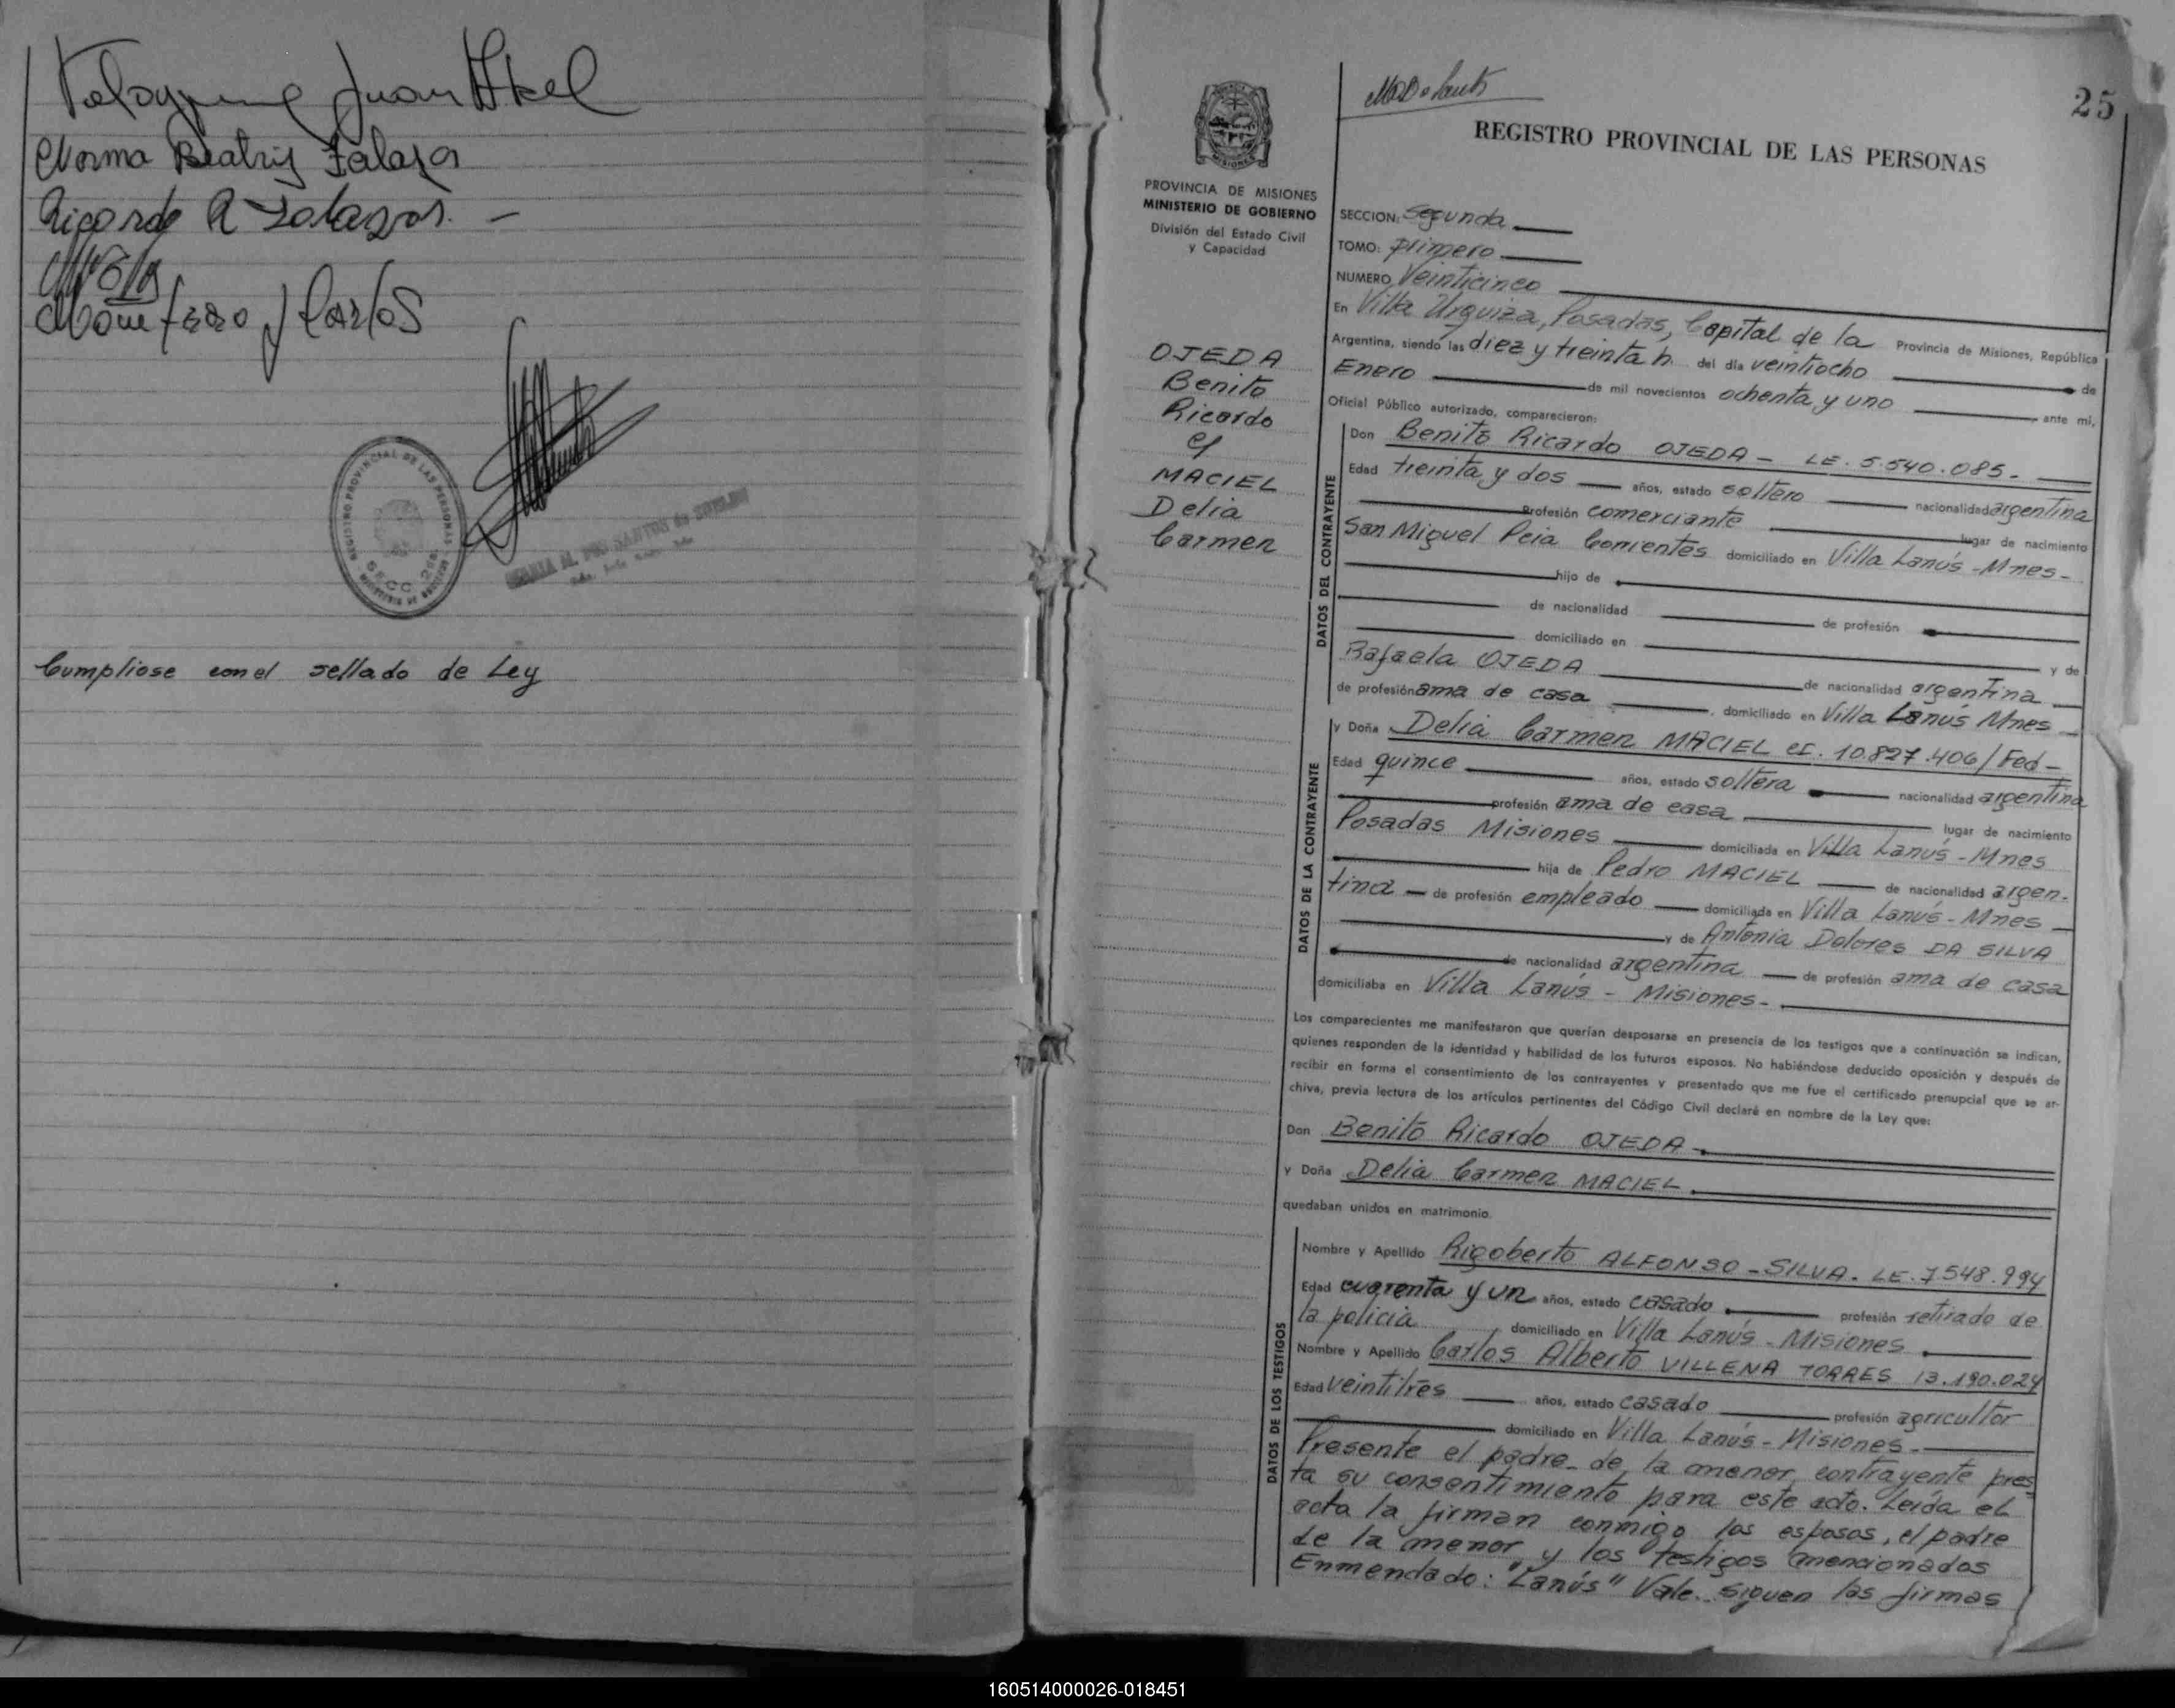 Juan Abel
Norma Beatriz Zalazar
Ricardo R Zalazar. -
Carlos
REGISTRO PROVINCIAL DE LAS PERSONAS
SECC. 2da.
Cumpliose con el sellado de Ley
25
MISIONES
PROVINCIA DE MISIONES
MINISTERIO DE GOBIERNO
División del Estado Civil
y Capacidad
OJEDA
Benito
Ricardo
c/
MACIEL
Delia
Carmen
REGISTRO PROVINCIAL DE LAS PERSONAS
SECCION: Segunda
TOMO: primero
NUMERO Veinticinco
En Villa Urquiza, Posadas, Capital de la Provincia de Misiones, República
Argentina, siendo las diez y treinta h. del día veintiocho de
Enero de mil novecientos ochenta y uno ante mí,
Oficial Público autorizado, comparecieron:
DATOS DEL CONTRAYENTE
Don Benito Ricardo OJEDA - LE. 5.540.085.-
Edad treinta y dos años, estado soltero nacionalidad argentina
profesión comerciante lugar de nacimiento
San Miguel Pcia Corrientes domiciliado en Villa Lanús - Mnes-
hijo de
de nacionalidad de profesión
domiciliado en y de
Rafaela OJEDA de nacionalidad argentina
de profesión ama de casa, domiciliado en Villa Lanús Mnes
DATOS DE LA CONTRAYENTE
y Doña Delia Carmen MACIEL CI. 10.827.406/Fed-
Edad quince años, estado soltera nacionalidad argentina
profesión ama de casa lugar de nacimiento
Posadas Misiones domiciliada en Villa Lanús - Mnes
hija de Pedro MACIEL de nacionalidad argen-
tina de profesión empleado domiciliada en Villa Lanús - Mnes
y de Antonia Dolores DA SILVA
de nacionalidad argentina de profesión ama de casa
domiciliaba en Villa Lanús - Misiones-
Los comparecientes me manifestaron que querían desposarse en presencia de los testigos que a continuación se indican,
quienes responden de la identidad y habilidad de los futuros esposos. No habiéndose deducido oposición y después de
recibir en forma el consentimiento de los contrayentes y presentado que me fue el certificado prenupcial que se ar-
chiva, previa lectura de los artículos pertinentes del Código Civil declaré en nombre de la Ley que:
Don Benito Ricardo OJEDA
y Doña Delia Carmen MACIEL
quedaban unidos en matrimonio.
DATOS DE LOS TESTIGOS
Nombre y Apellido Rigoberto ALFONSO - SILVA. LE. 7548.994
Edad cuarenta y un años, estado casado profesión retirado de
la policia domiciliado en Villa Lanús - Misiones
Nombre y Apellido Carlos Alberto VILLENA TORRES 13.190.024
Edad veintitrés años, estado casado profesión agricultor
domiciliado en Villa Lanús - Misiones-
Presente el padre de la menor contrayente pres
ta su consentimiento para este acto. Leída el
acta la firman conmigo los esposos, el padre
de la menor y los testigos mencionados
Enmendado: "Lanús" Vale. Siguen las firmas
160514000026-018451